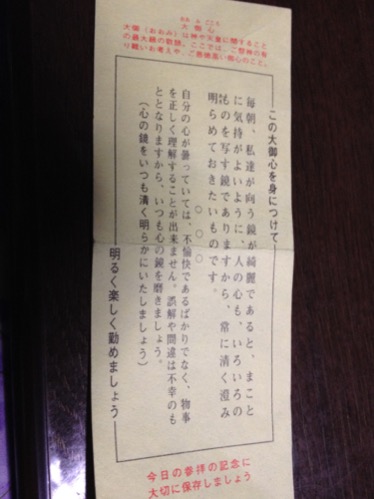 おおみごころ
大御心
大御(おおみ)は神や天皇に関すること
の最大級の敬語。ここでは、ご祭神の有
り難いお考えや、ご徳徳高い御心のこと。
この大御心を身につけて
毎朝、私達が向う鏡が綺麗であると、まこと
に気持がよいように、人の心も、いろいろの
ものを写す鏡でありますから、常に清く澄み
明らめておきたいものです。
○○○
自分の心が曇っていては、不愉快であるばかりでなく、物事
を正しく理解することが出来ません。誤解や間違は不幸のも
ととなりますから、いつも心の鏡を磨きましょう。
(心の鏡をいつも清く明らかにいたしましょう)
明るく楽しく勤めましょう
今日の参拝の記念に
大切に保存しましょう